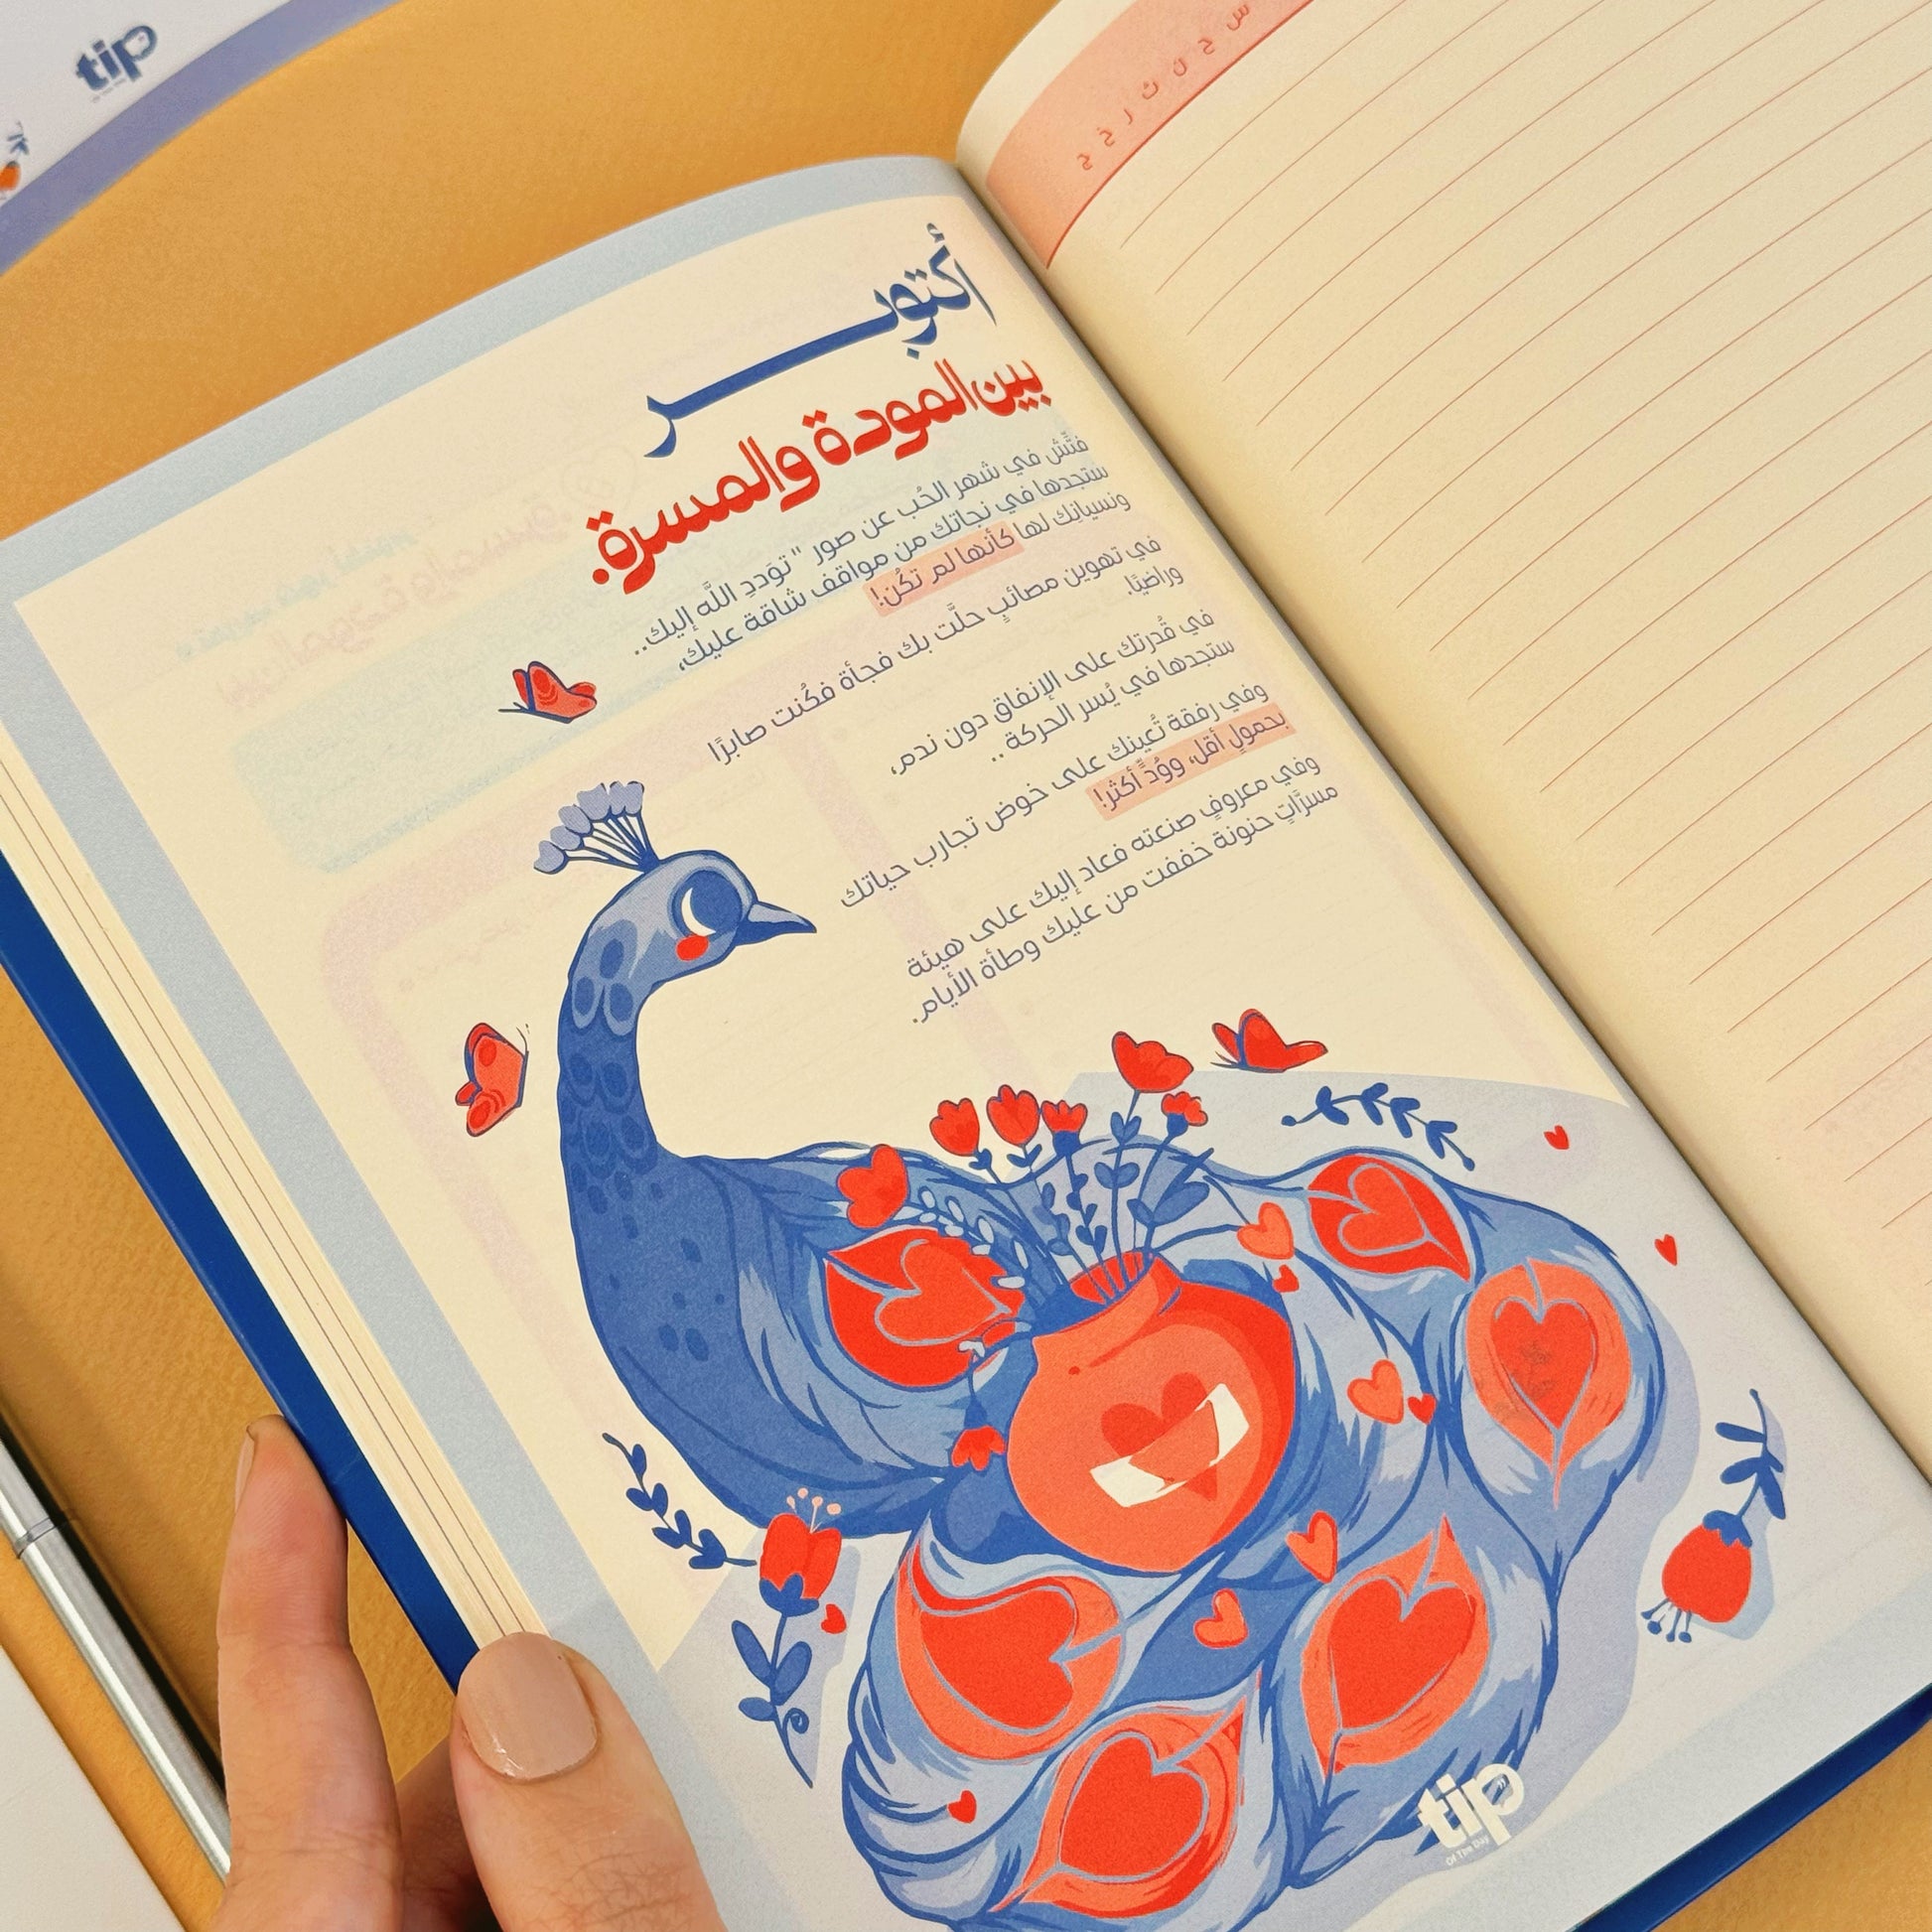 tip
س ح ن ث ر خ ج
أُكتوبر
بين المودة والمسرة.
فتَّش في شهر الحُب عن صور " توَددِ اللَّه إليك..
ستجدها في نجاتك من مواقف شاقة عليك،
ونسيانِك لها كأنها لم تكُن!
في تهوين مصائبٍ حلَّت بك فجأة فكُنت صابرًا
وراضيًا.
في قُدرتك على الإنفاق دون ندم،
ستجدها في يُسر الحركة..
وفي رفقة تُعينك على خوض تجارب حياتك
بحمولٍ أقل، ووُدٍّ أكثر!
وفي معروفٍ صنعته فعاد إليك على هيئة
مسرَّاتٍ حنونة خففت من عليك وطأة الأيام.
tip
Of The Day